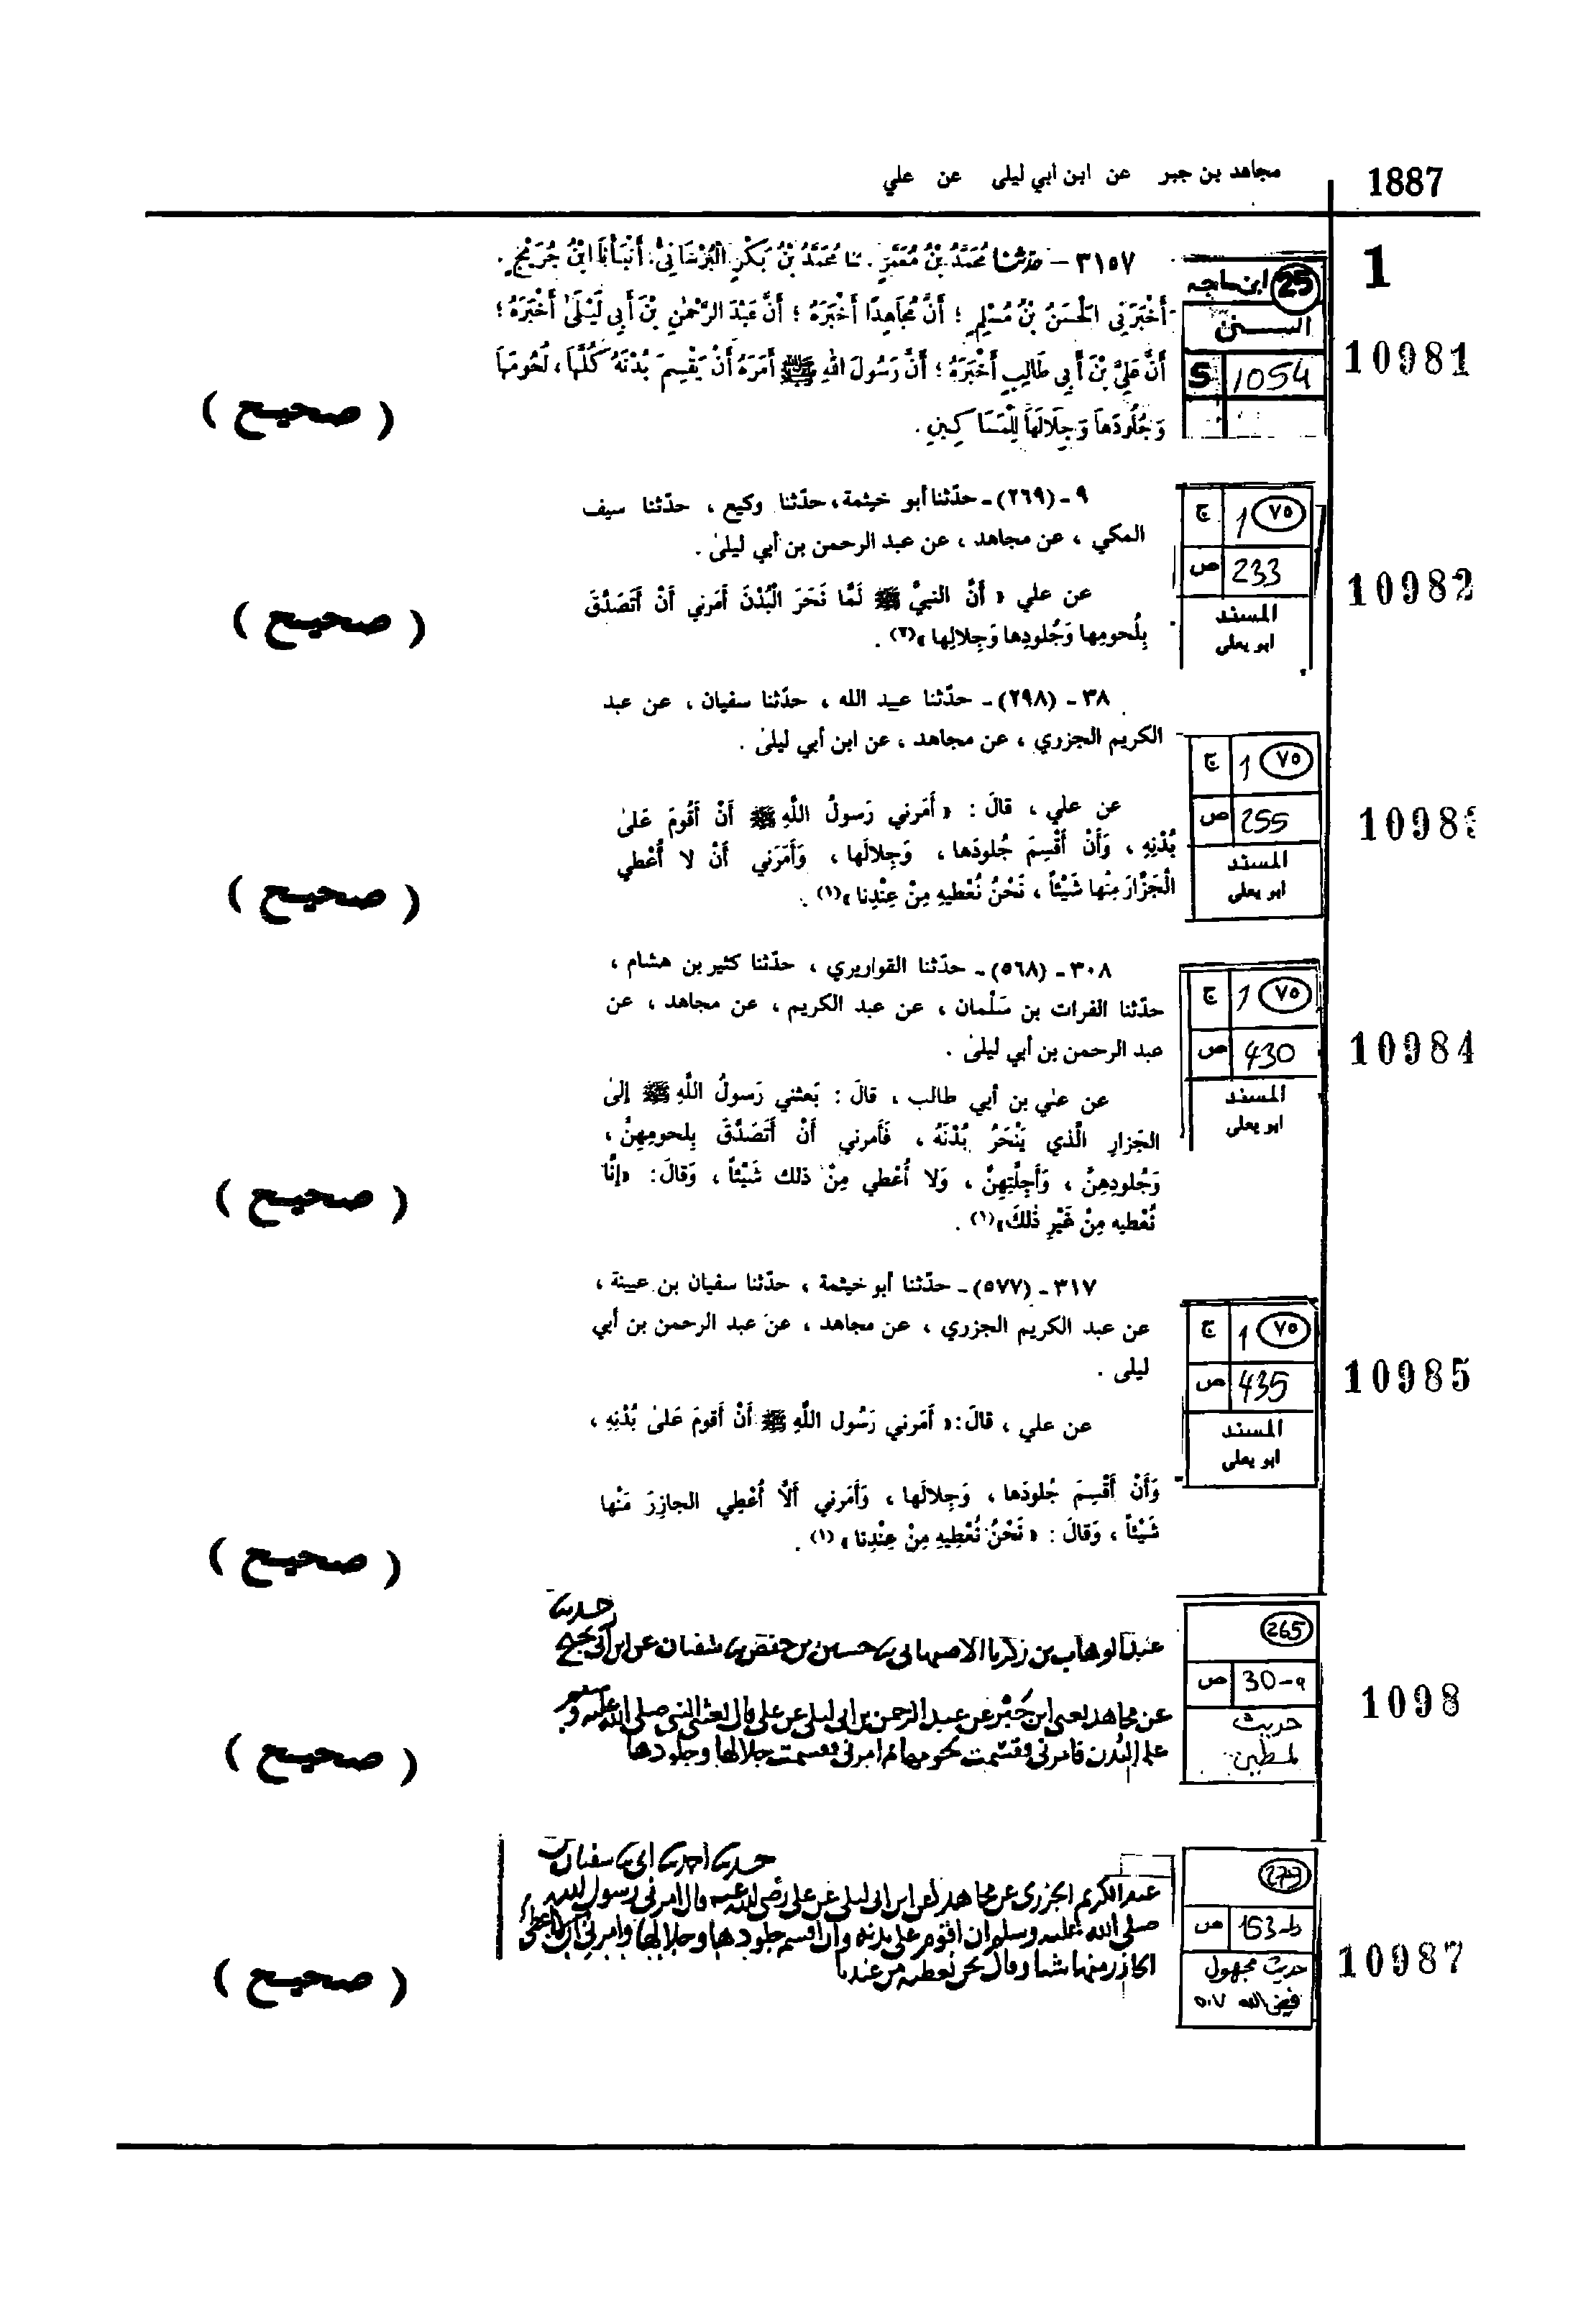 1887
مجاهد بن جبر عن ابن أبي ليلى عن علي
1
10981
25 ابن ماجه
السنن
S 1054
٣١٥٧ – حدثنا مُحَمَّدُ بْنُ مَعْمَرٍ. ثنا مُحَمَّدُ بْنُ بَكْرٍ الْبُرْسَانِيُّ. أَنْبَأَنَا ابْنُ جُرَيْجٍ.
أَخْبَرَنِي الْحَسَنُ بْنُ مُسْلِمٍ؛ أَنَّ مُجَاهِدًا أَخْبَرَهُ؛ أَنَّ عَبْدَ الرَّحْمٰنِ بْنَ أَبِي لَيْلَىٰ أَخْبَرَهُ؛
أَنَّ عَلِيَّ بْنَ أَبِي طَالِبٍ أَخْبَرَهُ؛ أَنَّ رَسُولَ اللهِ ﷺ أَمَرَهُ أَنْ يَقْسِمَ بُدْنَهُ كُلَّهَا، لُحُومَهَا
وَجُلُودَهَا وَجِلَالَهَا لِلْمَسَاكِينِ.
( صحيح )
10982
ج 1 ٧٥
ص 233
المسند
ابو يعلى
٩ - (٢٦٩) - حدّثنا أبو خيثمة، حدّثنا وكيع ، حدّثنا سيف
المكي ، عن مجاهد ، عن عبد الرحمن بن أبي ليلىٰ .
عن علي « أَنَّ النبيَّ ﷺ لَمَّا نَحَرَ الْبُدْنَ أَمَرني أَنْ أَتَصَدَّقَ
بِلُحومِها وَجُلودِها وَجِلالِها »(٢) .
( صحيح )
1098
ج 1 ٧٥
ص 255
المسند
ابو يعلى
٣٨ - (٢٩٨) - حدّثنا عبيد الله ، حدّثنا سفيان ، عن عبد
الكريم الجزري ، عن مجاهد ، عن ابن أبي ليلىٰ .
عن علي ، قالَ : « أَمَرني رَسولُ اللَّهِ ﷺ أَنْ أَقُومَ عَلىٰ
بُدْنِهِ ، وَأَنْ أَقْسِمَ جُلودَها ، وَجِلالَها ، وَأَمَرَني أَنْ لا أُعْطي
الْجَزَّارَ مِنْها شَيْئاً ، نَحْنُ نُعْطيهِ مِنْ عِنْدِنا »(١) .
( صحيح )
10984
ج 1 ٧٥
ص 430
المسند
ابو يعلى
٣٠٨ - (٥٦٨) - حدّثنا القواريري ، حدّثنا كثير بن هشام ،
حدّثنا الفرات بن سَلْمان ، عن عبد الكريم ، عن مجاهد ، عن
عبد الرحمن بن أبي ليلىٰ .
عن علي بن أبي طالب ، قالَ : بَعثني رَسولُ اللَّهِ ﷺ إلىٰ
الجَزارِ الَّذي يَنْحَرُ بُدْنَهُ ، فَأَمرني أَنْ أَتَصَدَّقَ بِلحومِهِنَّ ،
وَجُلودِهِنَّ ، وَأَجِلَّتِهِنَّ ، وَلا أُعْطي مِنْ ذلك شَيْئاً ، وَقالَ : «إنَّا
نُعْطيه مِنْ غَيْرِ ذٰلكَ»(١) .
( صحيح )
10985
ج 1 ٧٥
ص 435
المسند
ابو يعلى
٣١٧ - (٥٧٧) - حدّثنا أبو خيثمة ، حدّثنا سفيان بن عيينة ،
عن عبد الكريم الجزري ، عن مجاهد ، عن عبد الرحمن بن أبي
ليلى .
عن علي ، قالَ :« أَمَرني رَسُول اللَّهِ ﷺ أَنْ أَقومَ عَلىٰ بُدْنِهِ ،
وَأَنْ أَقْسِمَ جُلودَها ، وَجِلالَها ، وَأَمَرني أَلَّا أُعْطِي الجازِرَ مَنْها
شَيْئاً ، وَقالَ : « نَحْنُ نُعْطِيهِ مِنْ عِنْدِنا »(١) .
( صحيح )
1098
265
ص 30-٩
حديث
لمطين
حدثنا
عبد الوهاب بن زكريا الاصبهاني نا حسين بن حفص نا سفيان عن ابن أبي نجيح
عن مجاهد يعني ابن جبر عن عبد الرحمن بن ابي ليلى عن علي قال بعثني النبي صلى الله عليه وسلم
على البدن فامرني فقسمت لحومها ثم امرني فقسمت جلالها وجلودها
( صحيح )
10987
ص 153-ط
حديث مجهول
فيض الله ٥٠٧
حدثنا احمد نا ابي نا سفيان
عبد الكريم الجزري عن مجاهد عن ابن ابي ليلى عن علي رضي الله عنه قال امرني رسول الله
صلى الله عليه وسلم ان اقوم على بدنه وان اقسم جلودها وجلالها وامرني ان لا اعطي
الجازر منها شيا وقال نحن نعطيه من عندنا
( صحيح )